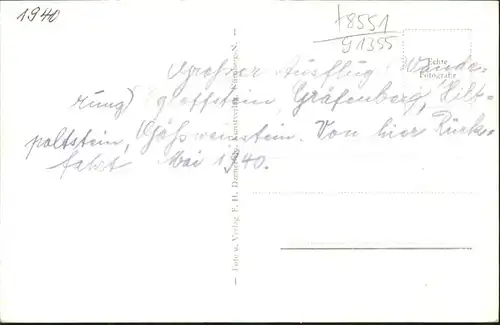 1940
+8551
91355
Echte
Fotografie
Großer Ausflug (Wande-
rung) Gräfenberg, Hilt-
poltstein, Gößweinstein. Von hier Rück-
fahrt Mai 1940.
Foto u. Verlag F. H. Nürnberg-N.